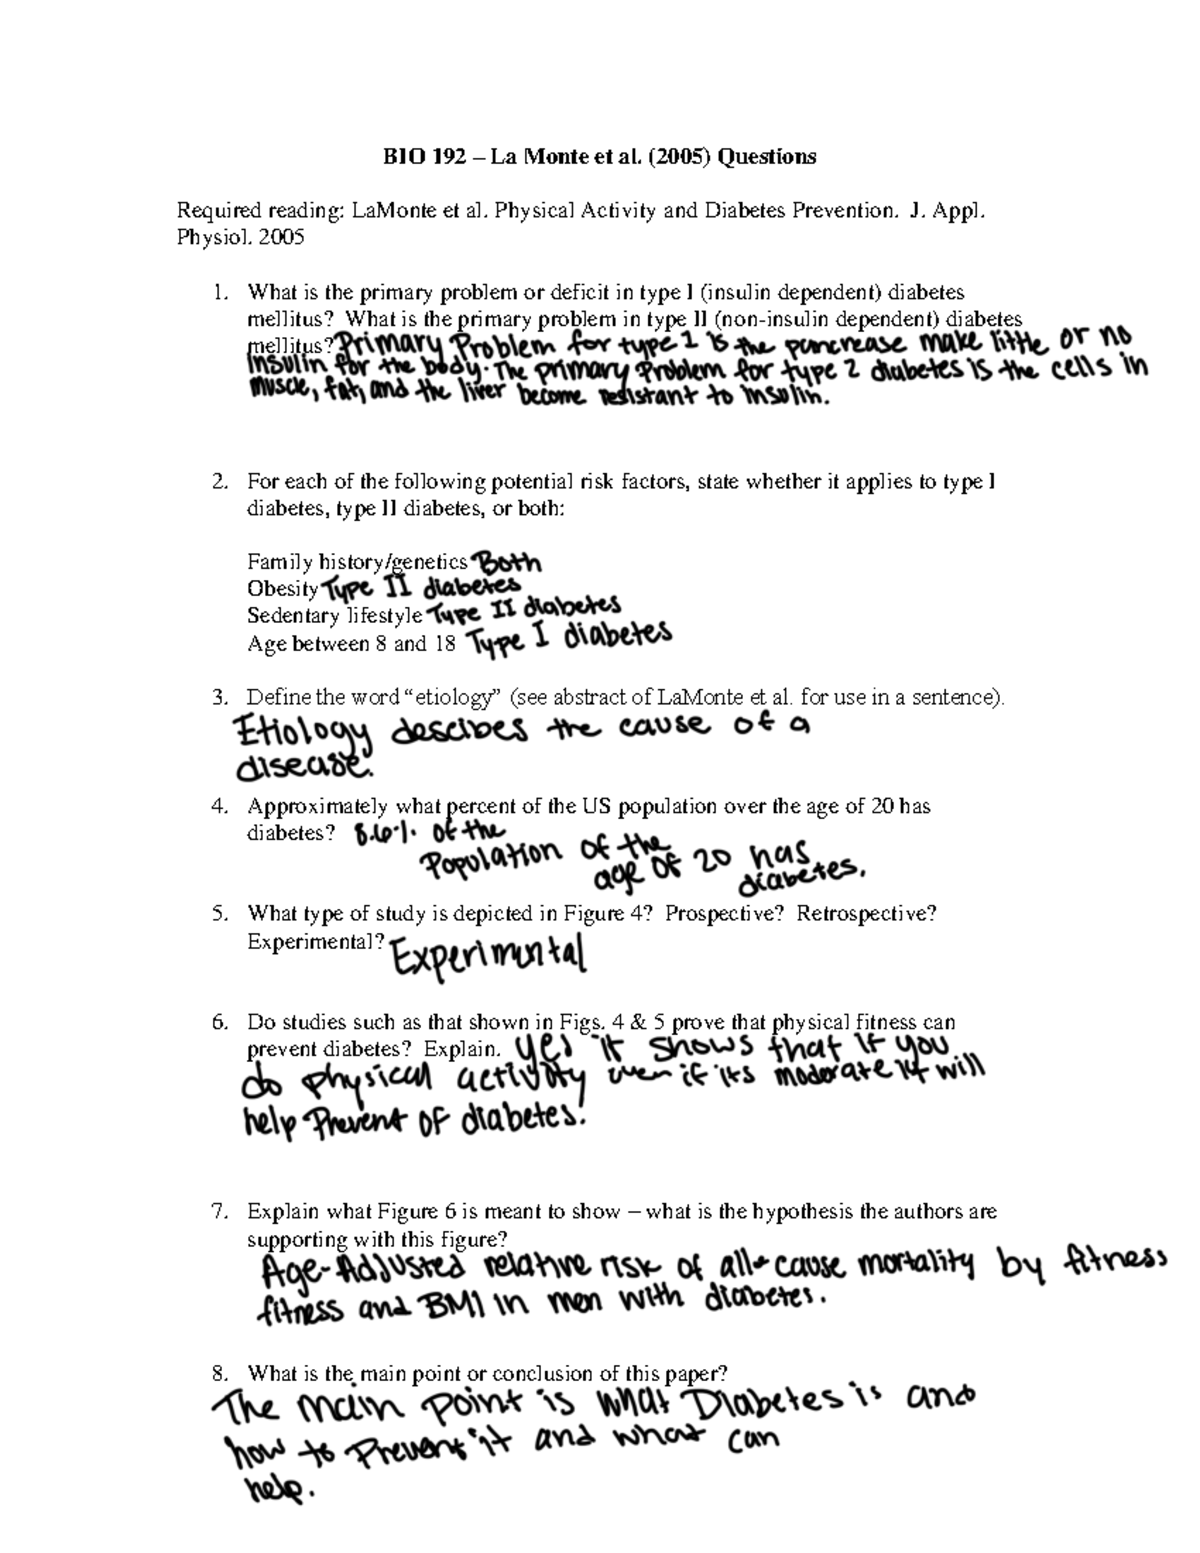 BIO 192 – La Monte et al. (2005) Questions
Required reading: LaMonte et al. Physical Activity and Diabetes Prevention. J. Appl.
Physiol. 2005
1. What is the primary problem or deficit in type I (insulin dependent) diabetes
mellitus? What is the primary problem in type II (non-insulin dependent) diabetes
mellitus? Primary Problem for type 1 is the pancrease make little or no
insulin for the body. The primary Problem for type 2 diabetes is the cells in
muscle, fat, and the liver become resistant to insulin.
2. For each of the following potential risk factors, state whether it applies to type I
diabetes, type II diabetes, or both:
Family history/genetics Both
Obesity Type II diabetes
Sedentary lifestyle Type II diabetes
Age between 8 and 18 Type I diabetes
3. Define the word “etiology” (see abstract of LaMonte et al. for use in a sentence).
Etiology descibes the cause of a
disease.
4. Approximately what percent of the US population over the age of 20 has
diabetes? 8.6%. of the
Population of the
age of 20 has
diabetes.
5. What type of study is depicted in Figure 4? Prospective? Retrospective?
Experimental? Experimental
6. Do studies such as that shown in Figs. 4 & 5 prove that physical fitness can
prevent diabetes? Explain. yes it shows that if you
do physical activity even if its moderate it will
help Prevent of diabetes.
7. Explain what Figure 6 is meant to show – what is the hypothesis the authors are
supporting with this figure?
Age-Adjusted relative risk of all-cause mortality by fitness
fitness and BMI in men with diabetes.
8. What is the main point or conclusion of this paper?
The main point is what Diabetes is and
how to Prevent it and what can
help.